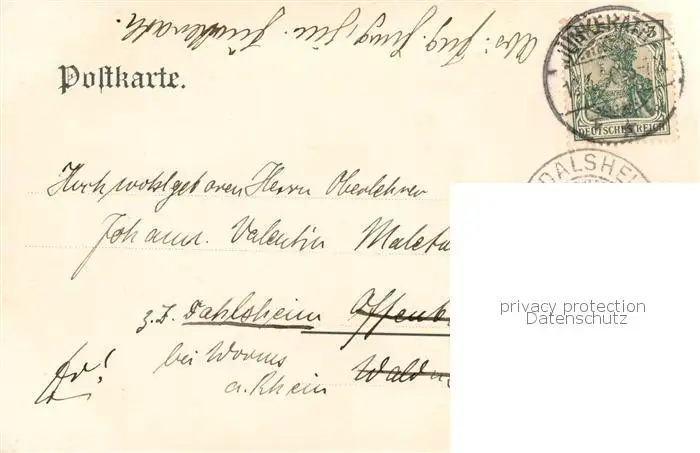 Abs: Jünkerath.
Postkarte.
JÜNKERATH
DEUTSCHES REICH
DALSHEI
Hochwohlgeboren Herrn Oberlehrer
Johann. Valentin
z. Z. Dahlsheim Offenb
bei Worms
a. Rhein
privacy protection
Datenschutz